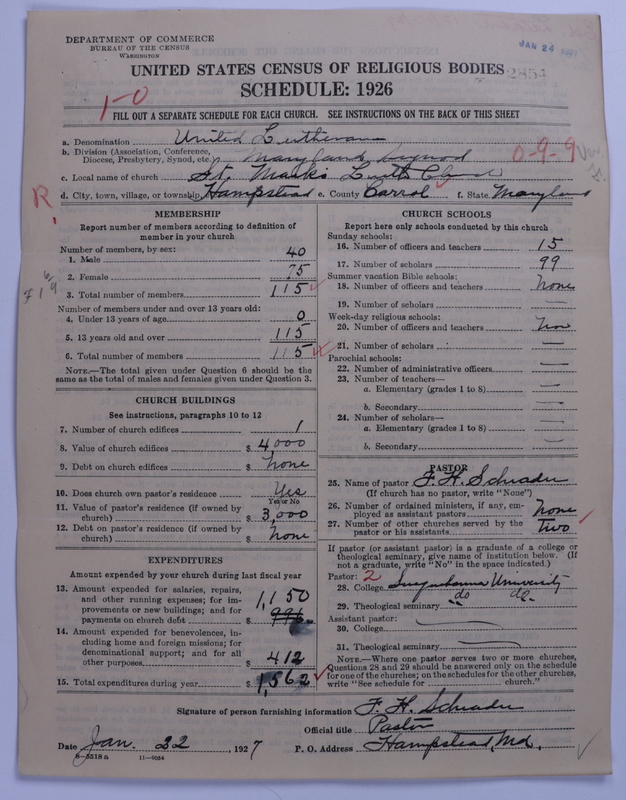 DEPARTMENT OF COMMERCE
BUREAU OF THE CENSUS
WASHINGTON
JAN 24 1927
UNITED STATES CENSUS OF RELIGIOUS BODIES
2854
SCHEDULE: 1926
1-0
FILL OUT A SEPARATE SCHEDULE FOR EACH CHURCH. SEE INSTRUCTIONS ON THE BACK OF THIS SHEET
a. Denomination United Lutheran
b. Division (Association, Conference, Diocese, Presbytery, Synod, etc.) Maryland Synod
0-9-9
c. Local name of church St. Mark's Luth Church
d. City, town, village, or township Hampstead e. County Carrol f. State Maryland
R.
MEMBERSHIP
Report number of members according to definition of member in your church
Number of members, by sex:
1. Male 40
2. Female 75
3. Total number of members 115
Number of members under and over 13 years old:
4. Under 13 years of age 0
5. 13 years old and over 115
6. Total number of members 115
NOTE.—The total given under Question 6 should be the same as the total of males and females given under Question 3.
CHURCH BUILDINGS
See instructions, paragraphs 10 to 12
7. Number of church edifices 1
8. Value of church edifices $ 4000
9. Debt on church edifices $ none
10. Does church own pastor's residence Yes
Yes or No
11. Value of pastor's residence (if owned by church) $ 3,000
12. Debt on pastor's residence (if owned by church) $ none
EXPENDITURES
Amount expended by your church during last fiscal year
13. Amount expended for salaries, repairs, and other running expenses; for improvements or new buildings; and for payments on church debt $ 1,150
14. Amount expended for benevolences, including home and foreign missions; for denominational support; and for all other purposes $ 412
15. Total expenditures during year $ 1,562
CHURCH SCHOOLS
Report here only schools conducted by this church
Sunday schools:
16. Number of officers and teachers 15
17. Number of scholars 99
Summer vacation Bible schools:
18. Number of officers and teachers none
19. Number of scholars —
Week-day religious schools:
20. Number of officers and teachers non
21. Number of scholars —
Parochial schools:
22. Number of administrative officers —
23. Number of teachers—
a. Elementary (grades 1 to 8) —
b. Secondary —
24. Number of scholars—
a. Elementary (grades 1 to 8) —
b. Secondary —
PASTOR
25. Name of pastor F. H. Schrader
(If church has no pastor, write "None")
26. Number of ordained ministers, if any, employed as assistant pastors none
27. Number of other churches served by the pastor or his assistants Two
If pastor (or assistant pastor) is a graduate of a college or theological seminary, give name of institution below. (If not a graduate, write "No" in the space indicated.)
Pastor: 2
28. College Susquehanna University
29. Theological seminary do do
Assistant pastor:
30. College —
31. Theological seminary —
NOTE.—Where one pastor serves two or more churches, Questions 28 and 29 should be answered only on the schedule for one of the churches; on the schedules for the other churches, write "See schedule for ........ church."
Signature of person furnishing information F. H. Schrader
Official title Pastor
Date Jan. 22, 1927 P. O. Address Hampstead, Md.
8-5518a 11-9054